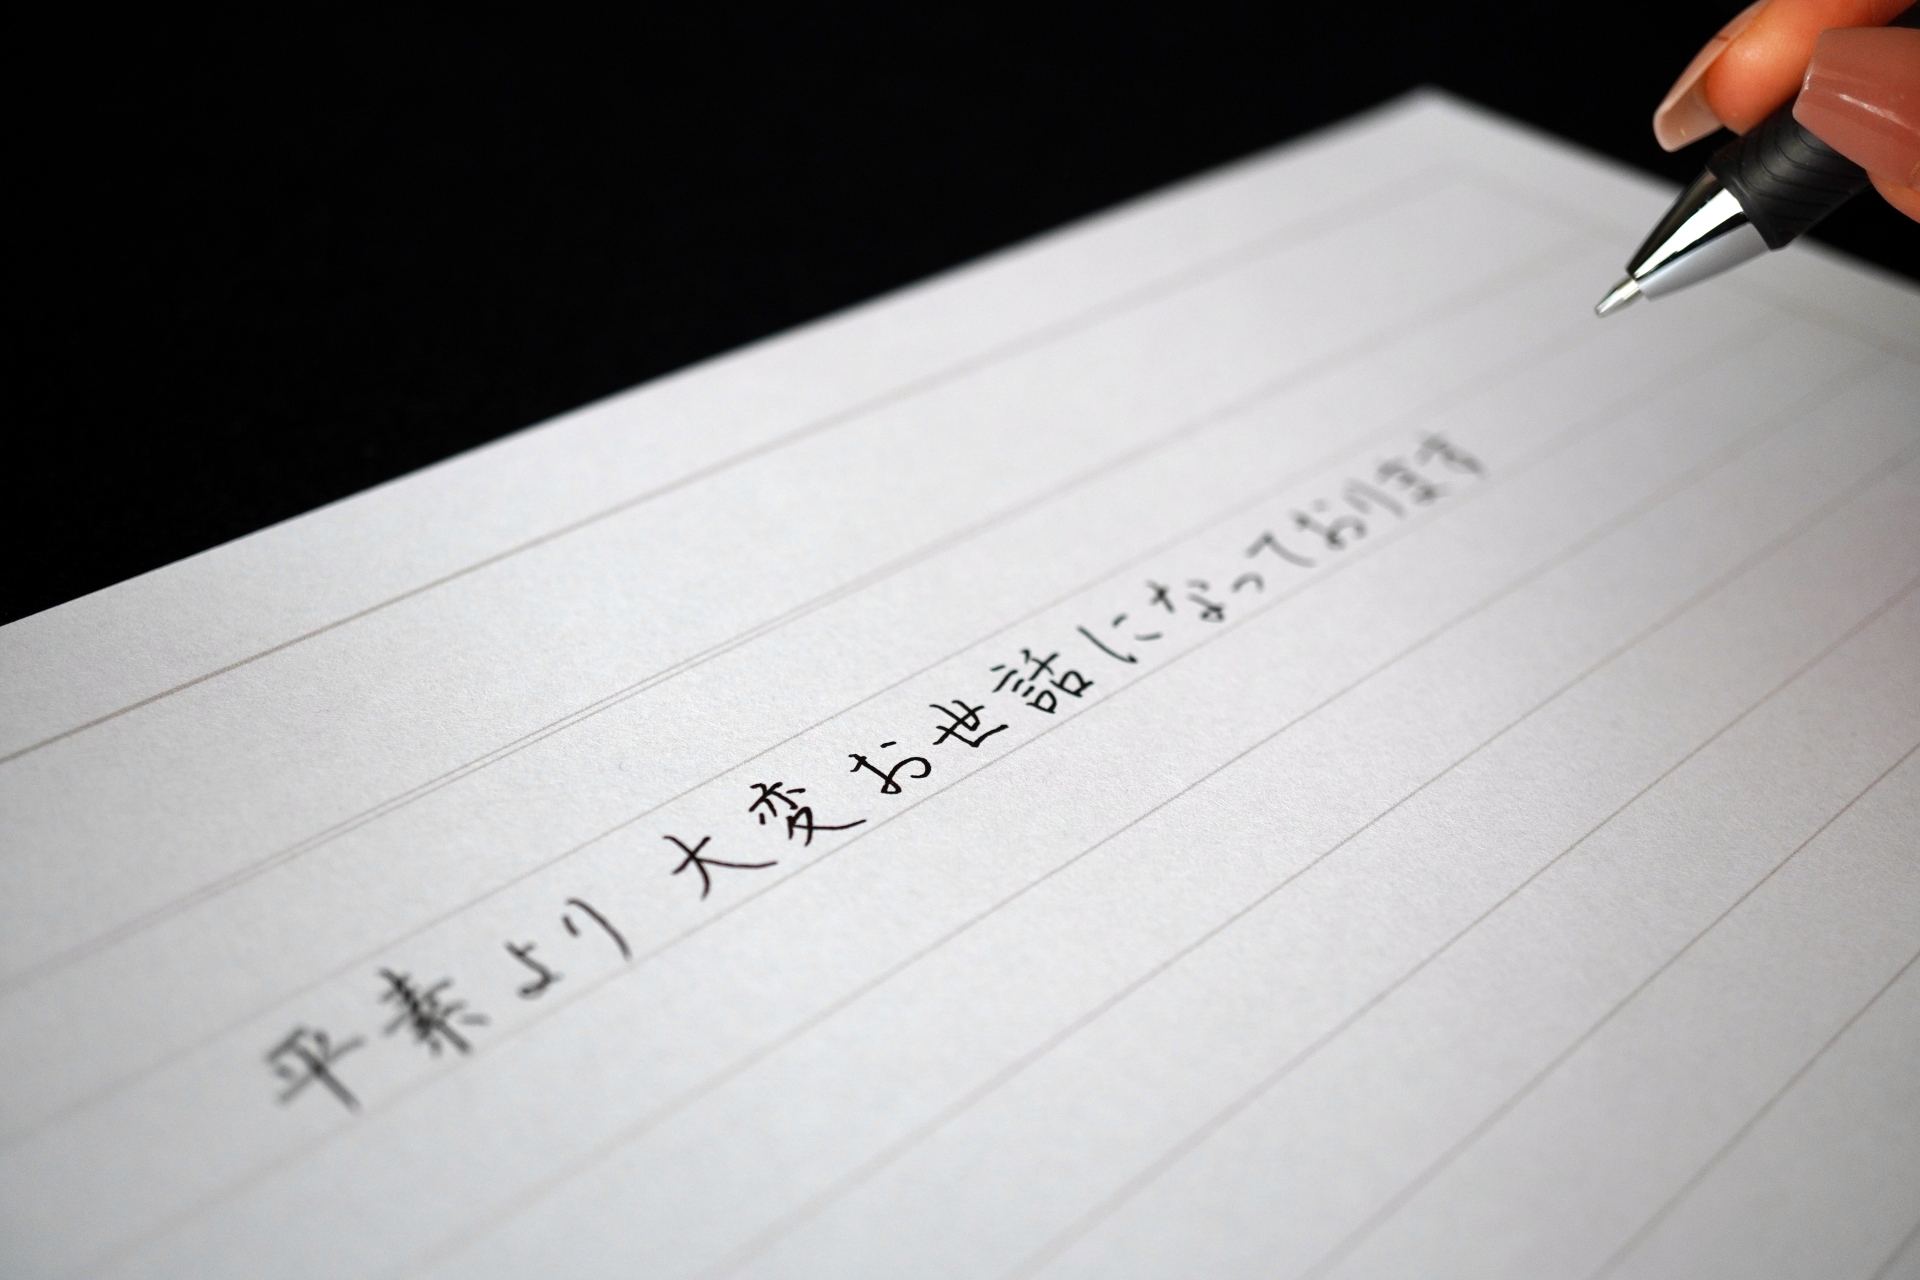 平素より大変お世話になっております